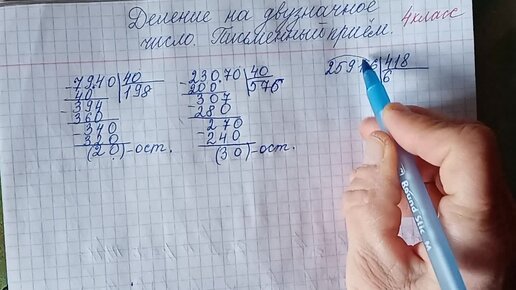 Деление на двузначное
число. Письменный приём.
4 класс
-7940 40
40 198
-394
360
-340
320
(20)-ост.
-230.70 40
200 576
-307
280
-270
240
(30)-ост.
418
6
Round Stic M